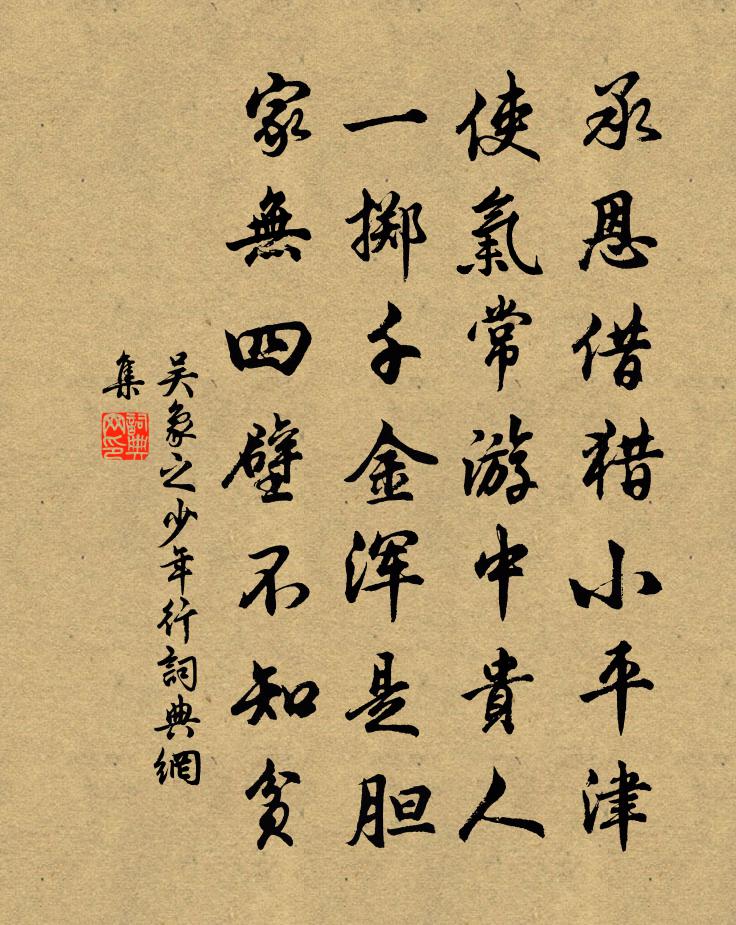 承恩借猎小平津
使氣常游中貴人
一掷千金浑是胆
家無四壁不知貧
吴象之少年行詞典網
集
詞典
网印